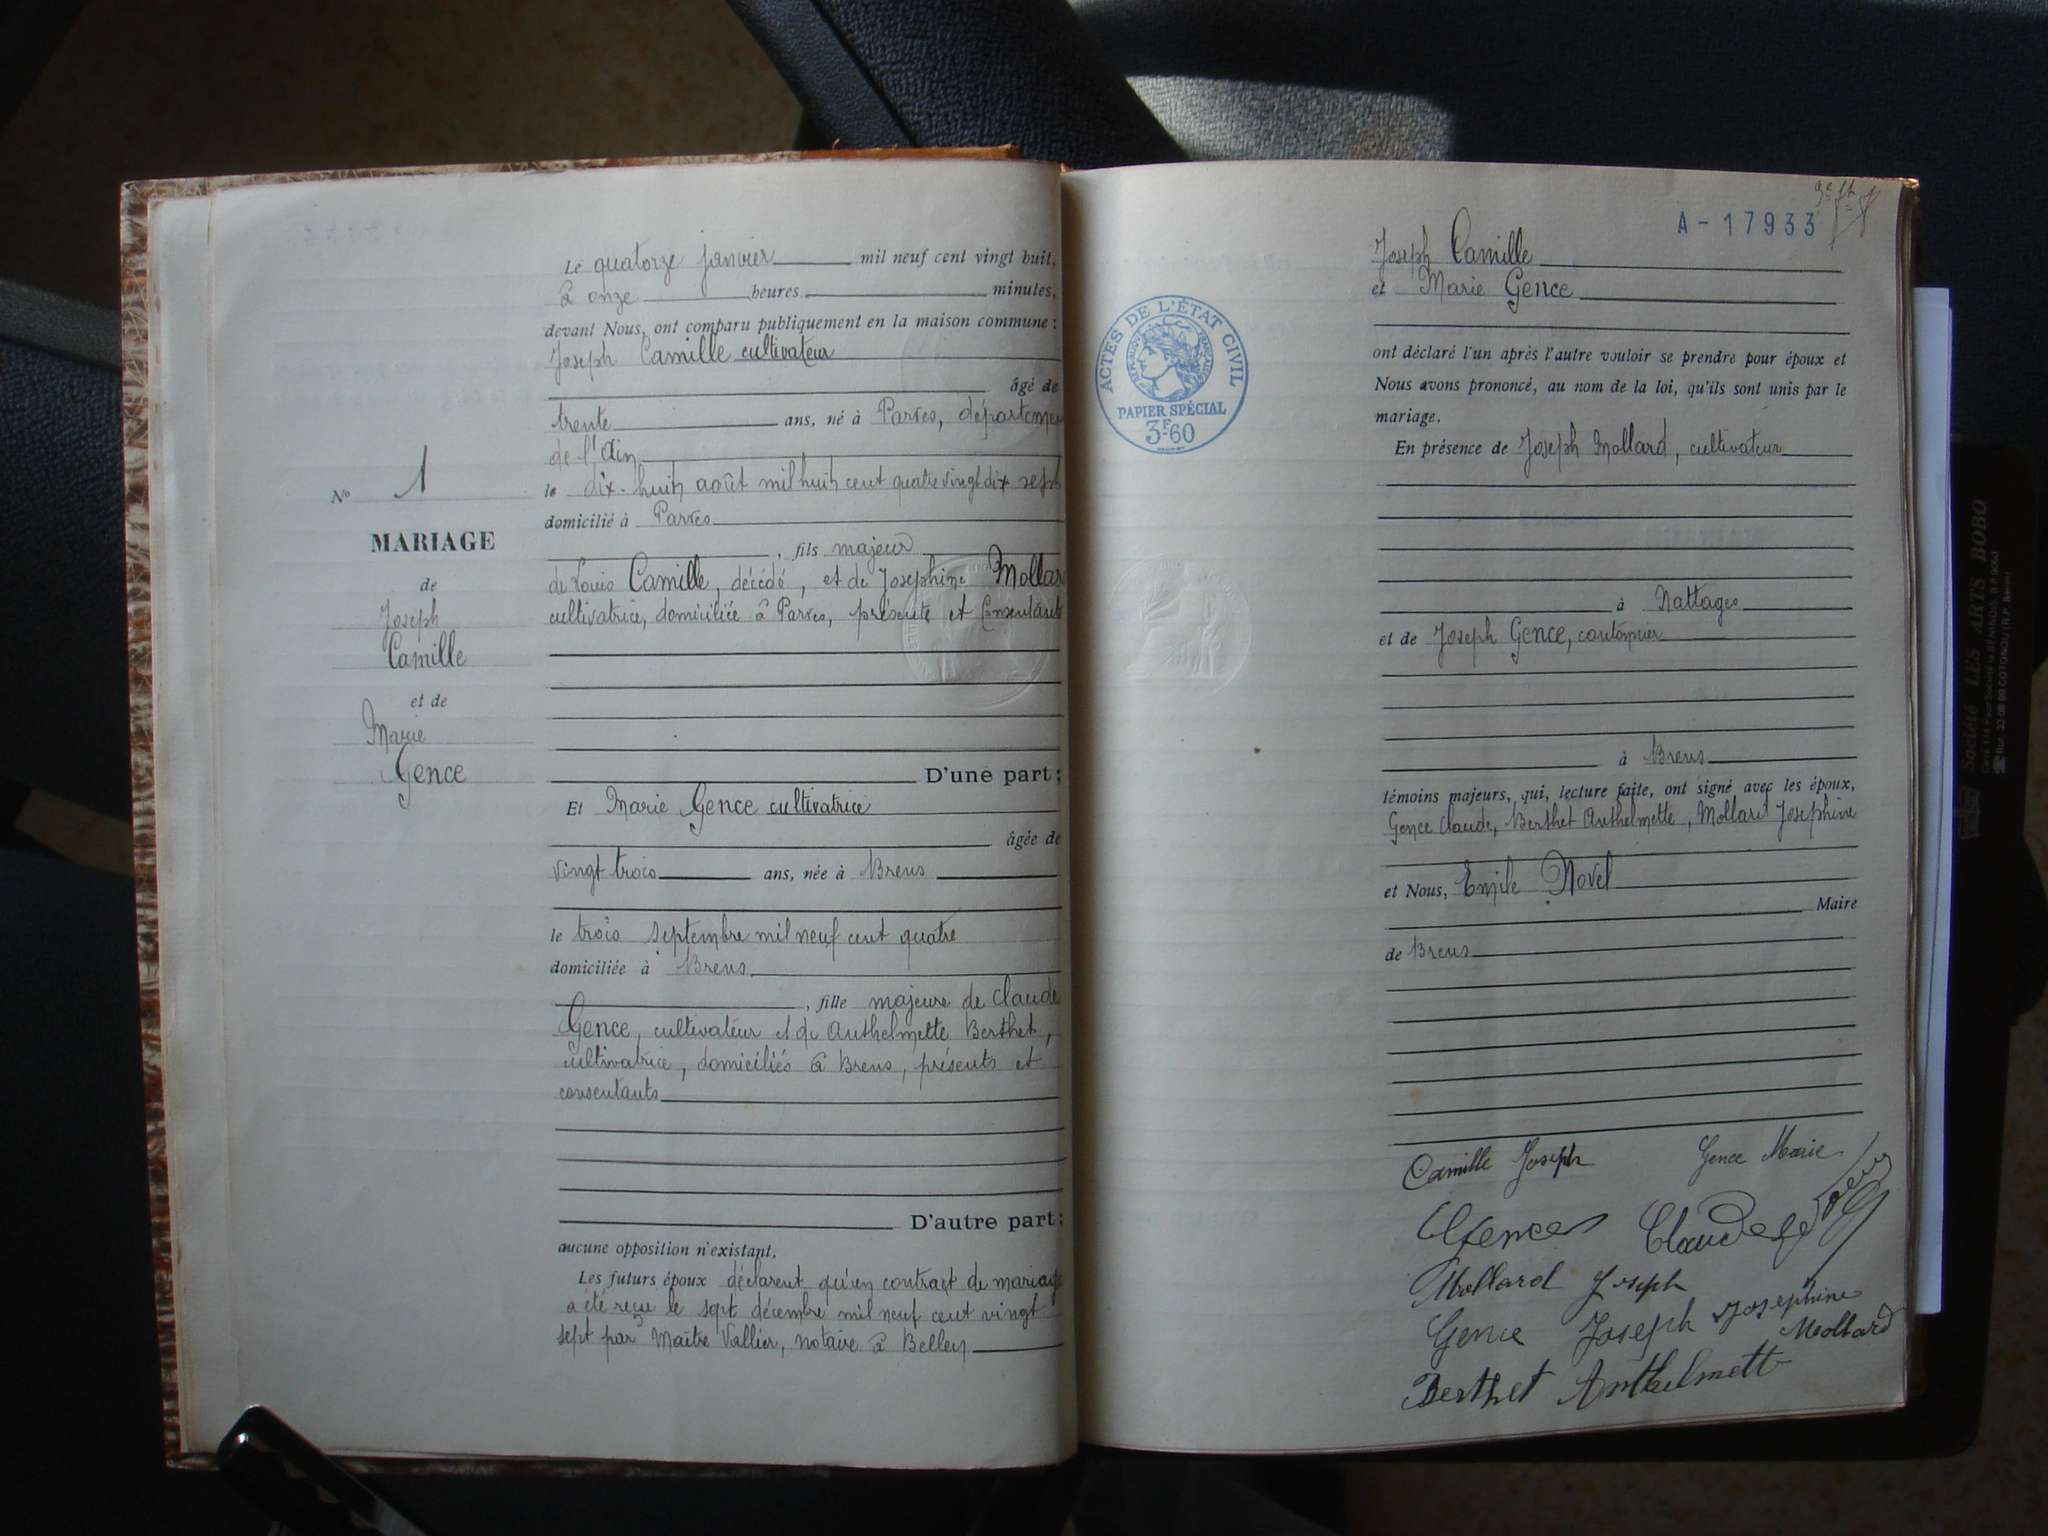 Nº 1
MARIAGE
de
Joseph
Camille
et de
Marie
Gence
Le quatorze janvier mil neuf cent vingt huit,
à onze heures minutes,
devant Nous, ont comparu publiquement en la maison commune :
Joseph Camille cultivateur
âgé de
trente ans, né à Parves, département
de l'Ain
le dix-huit août mil huit cent quatre vingt dix sept
domicilié à Parves
, fils majeur
de Louis Camille, décédé, et de Josephine Mollard
cultivatrice, domiciliée à Parves, présente et Consentante
D'une part ;
Et Marie Gence cultivatrice
âgée de
vingt trois ans, née à Brens
le trois septembre mil neuf cent quatre
domiciliée à Brens
, fille majeure de Claude
Gence, cultivateur et de Anthelmette Berthet,
cultivatrice, domiciliés à Brens, présents et
consentants
D'autre part ;
aucune opposition n'existant,
Les futurs époux déclarent qu'un contract de mariage
a été reçu le sept décembre mil neuf cent vingt
sept par Maître Vallier, notaire à Belley
A-17933
ACTES DE L'ÉTAT CIVIL
RÉPUBLIQUE FRANÇAISE
PAPIER SPÉCIAL
3F60
Joseph Camille
et Marie Gence
ont déclaré l'un après l'autre vouloir se prendre pour époux et
Nous avons prononcé, au nom de la loi, qu'ils sont unis par le
mariage.
En présence de Joseph Mollard, cultivateur
à Nattages
et de Joseph Gence, cantonnier
à Brens
témoins majeurs, qui, lecture faite, ont signé avec les époux,
Gence Claude, Berthet Anthelmette, Mollard Josephine
et Nous, Emile Novel
Maire
de Brens
Camille Joseph Gence Marie
Gence Claude
Mollard Joseph
Gence Joseph Josephine
Mollard
Berthet Anthelmett
Société LES ARTS BOBO